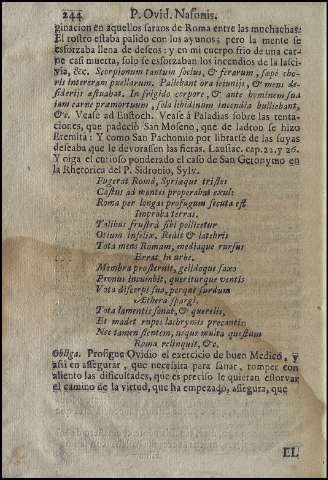 244 P. Ovid. Nasonis.
ginacion en aquellos saraos de Roma entre las muchachas.
El rostro estaba palido con los ayunos; pero la mente se
esforzaba llena de deseos: y en mi cuerpo frio de una car-
ne casi muerta, solo se esforzaban los incendios de la lasci-
via, &c. Scorpionum tantum socius, & ferarum, sæpè cho-
ris intereram puellarum. Pallebant ora ieiunijs, & mens de-
siderijs æstuabat. In frigido corpore, & ante hominem sua
iam carne præmortuum, sola libidinum incendia bulliebant,
&c. Vease ad Eustoch. Vease à Paladias sobre las tenta-
ciones, que padeciò San Moseno, que de ladron se hizo
Eremita: Y como San Pachomio por librarse de las suyas
deseaba que le devorassen las fieras. Lausiac. cap. 22. y 26.
Y oiga el curioso ponderado el caso de San Geronymo en
la Rhetorica del P. Sidronio, Sylv.
Fugerat Româ, Syriaque tristes
Castus ad montes properabat exul:
Roma per longas profugum secuta est
Improba terras.
Talibus frustrà sibi pollicetur
Otium infelix. Redit è latebris
Tota mens Romam, mediaque rursus
Errat in urbe.
Membra prosternit, gelidoque saxo
Pronus incumbit, queriturque ventis
Vota discerpi sua, perque surdum
Æthera spargi.
Tota lamentis sonat, & querelis,
Et madet rupes lachrymis precantis:
Nec tamen flentem, neque multa questum
Roma relinquit, &c.
Obliga. Prosigue Ovidio el exercicio de buen Medico, y
assi en assegurar, que necesita para sanar, romper con
aliento las dificultades, que es preciso le quieran estorvar
el camino de la virtud, que ha empezado, assegura, que
EL